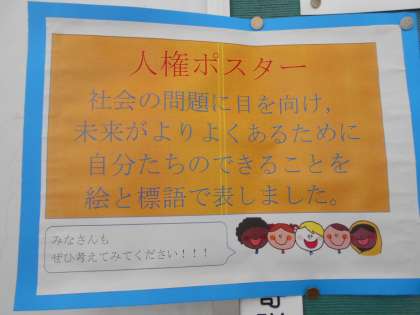 人権ポスター
社会の問題に目を向け，
未来がよりよくあるために
自分たちのできることを
絵と標語で表しました。
みなさんも
ぜひ考えてみてください！！！